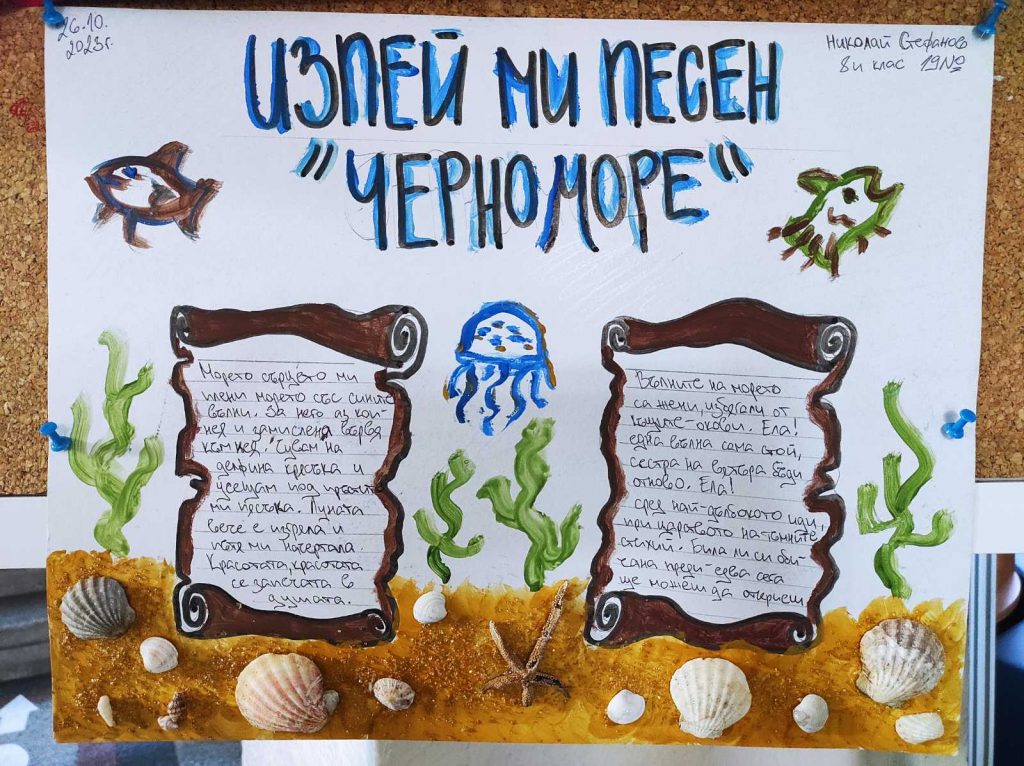 26.10.
2023г.
Николай Стефанов
8и клас 19№
ИЗПЕЙ МИ ПЕСЕН
"ЧЕРНО МОРЕ"
Морето сърцето ми
плени морето със сините
вълни. За него аз коп-
нея и замислена вървя
към нея. Чувам на
делфина кръсъка и
усещам под пръстите
ми пясъка. Луната
вече е изгряла и
пътя ми начертала.
Красотата, красотата
се запечата в
душата.
Вълните на морето
са жени, избягали от
къщите-окови. Ела!
една вълна сама стой,
сестра на вятъра бъди
отново. Ела!
сред най-дълбокото иди,
при царството на тъмните
стихии. Била ли си бя-
сана преди-едва сега
ще можеш да откриеш